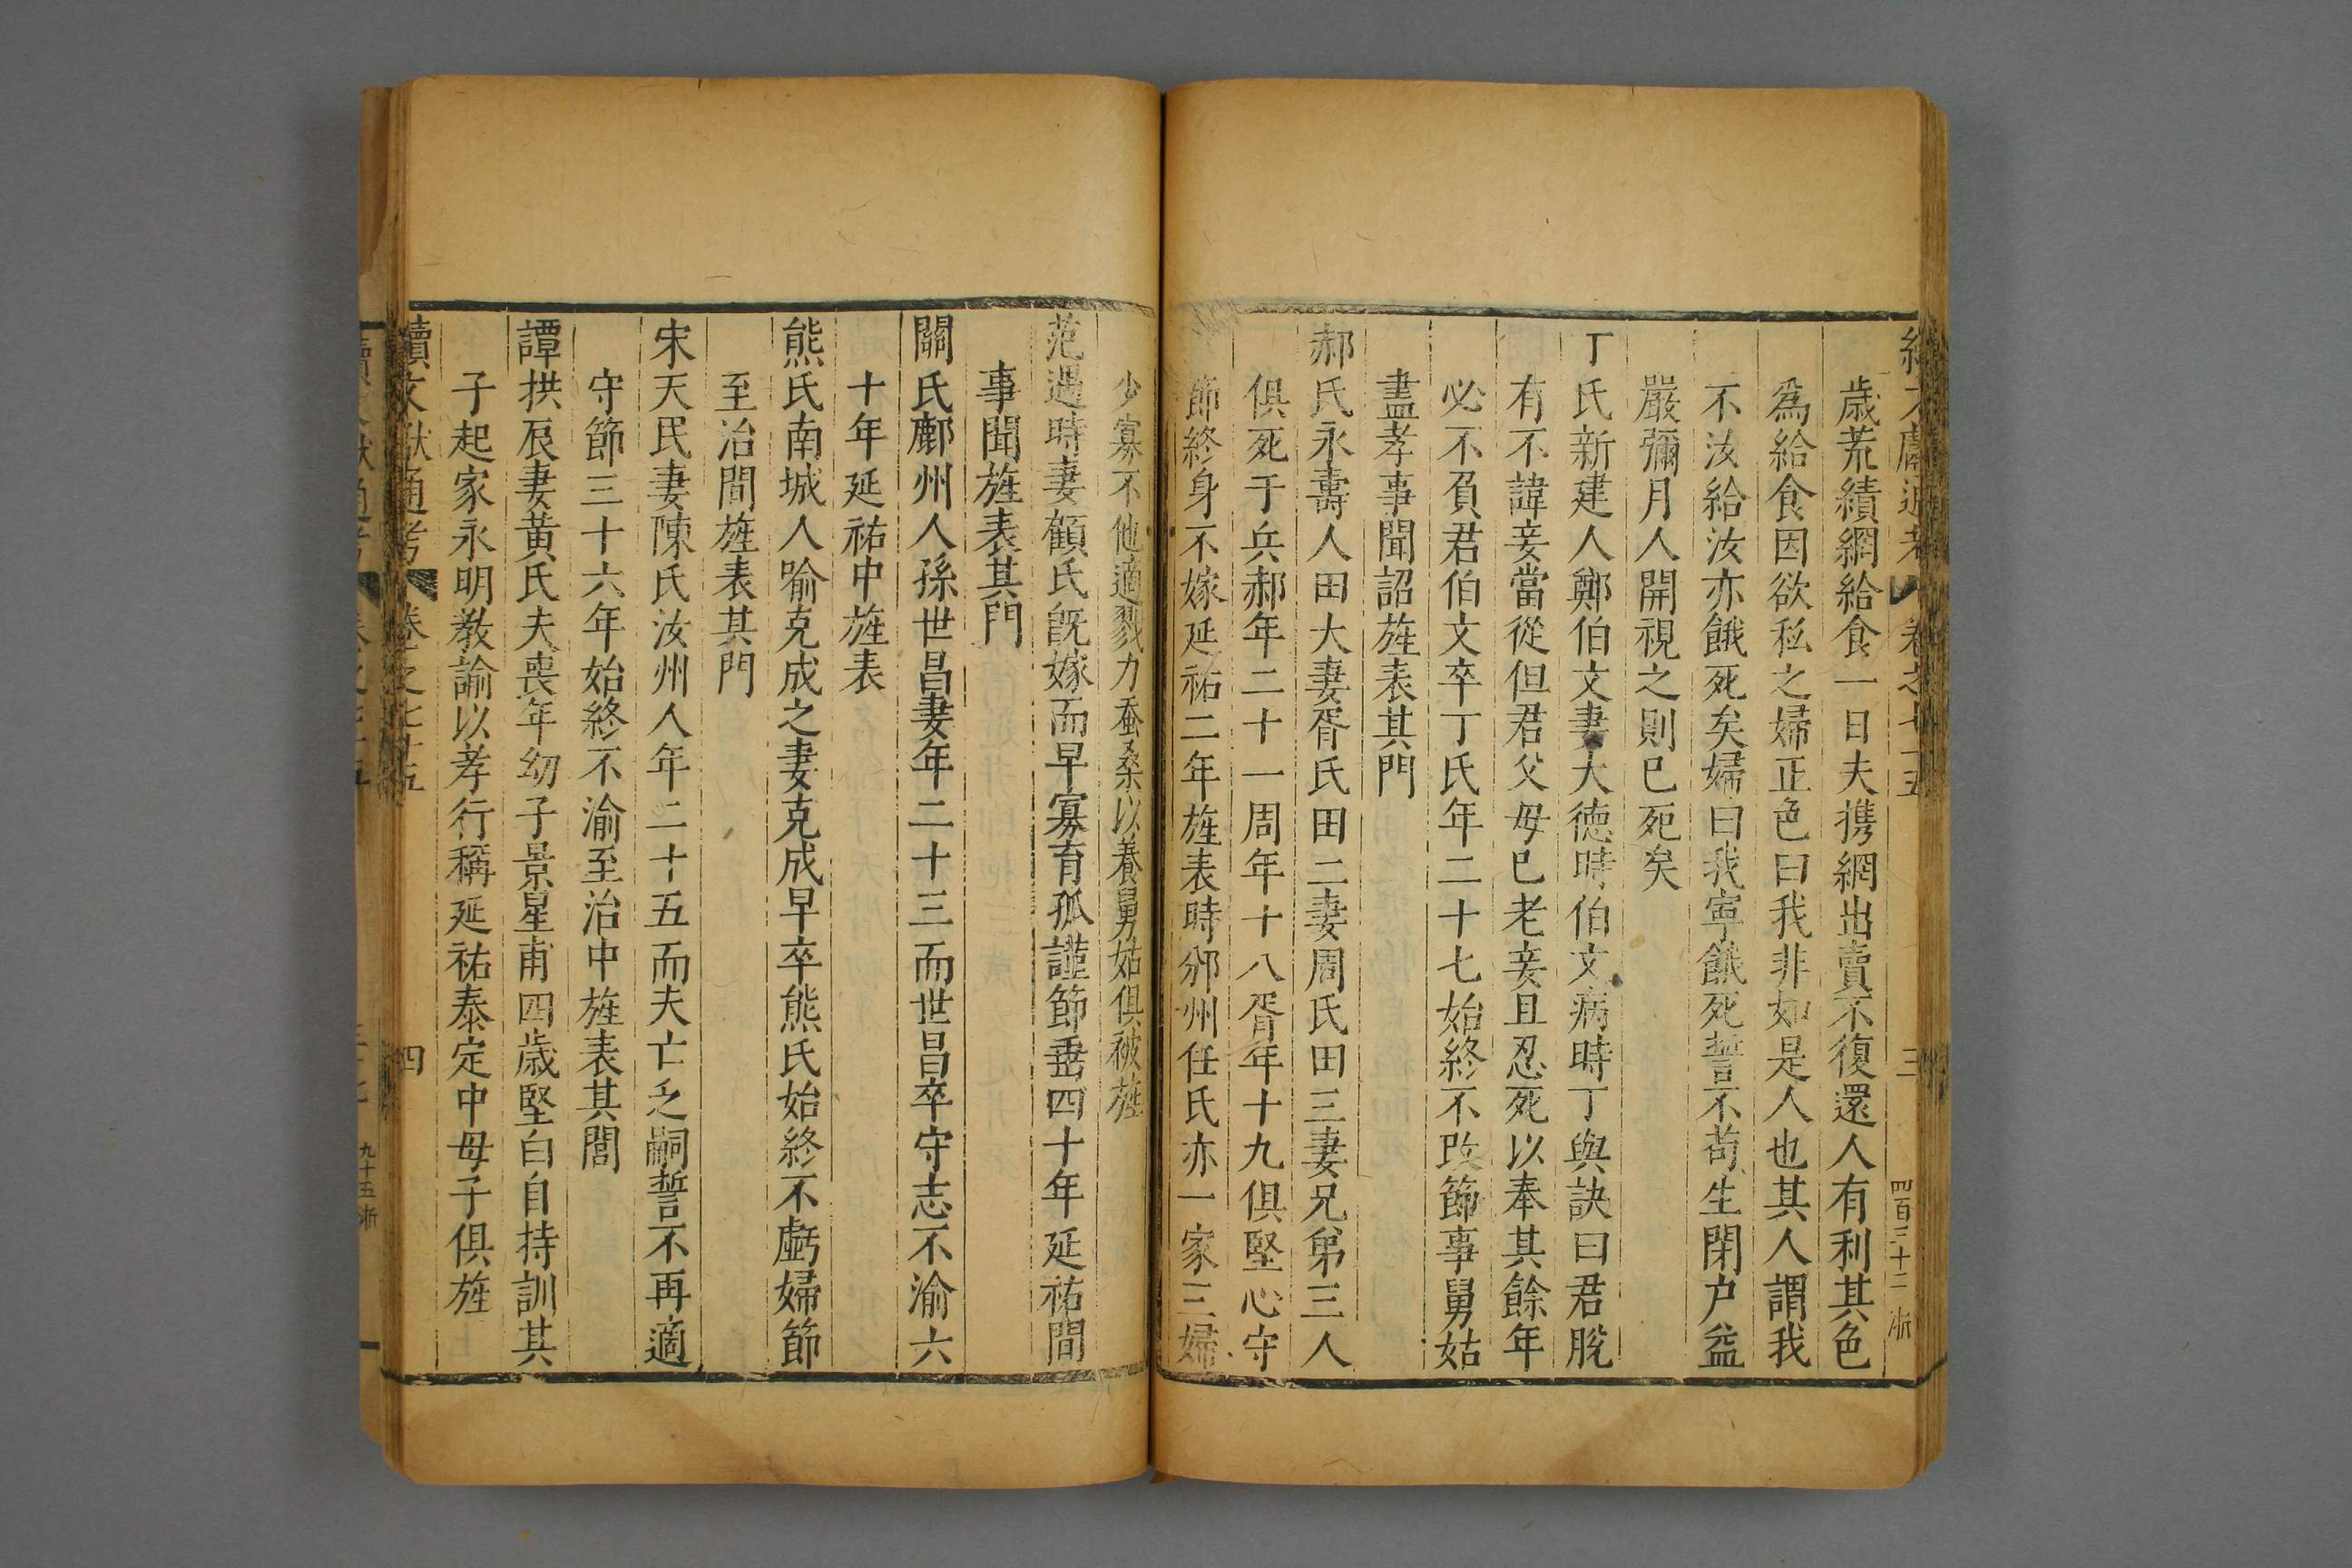 續文獻通考 卷之七十五 三 四百三十二 浙
歲荒績網給食一日夫携網出賣不復還人有利其色
為給食因欲私之婦正色曰我非如是人也其人謂我
不汝給汝亦餓死矣婦曰我寧餓死誓不苟生閉户益
嚴彌月人開視之則已死矣
丁氏新建人鄭伯文妻大德時伯文病時丁與訣曰君脫
有不諱妾當從但君父母已老妾且忍死以奉其餘年
必不負君伯文卒丁氏年二十七始終不改節事舅姑
盡孝事聞詔旌表其門
郝氏永壽人田大妻胥氏田二妻周氏田三妻兄弟三人
俱死于兵郝年二十一周年十八胥年十九俱堅心守
節終身不嫁延祐二年旌表時邠州任氏亦一家三婦
少寡不他適戮力蚕桑以養舅姑俱被旌
范遇時妻顧氏旣嫁而早寡育孤謹節垂四十年延祐間
事聞旌表其門
關氏鄜州人孫世昌妻年二十三而世昌卒守志不渝六
十年延祐中旌表
熊氏南城人喻克成之妻克成早卒熊氏始終不虧婦節
至治間旌表其門
宋天民妻陳氏汝州人年二十五而夫亡乏嗣誓不再適
守節三十六年始終不渝至治中旌表其閭
譚拱辰妻黃氏夫喪年幼子景星甫四歲堅白自持訓其
子起家永明教諭以孝行稱延祐泰定中母子俱旌
續文獻通考 卷之七十五 四
九十五 浙